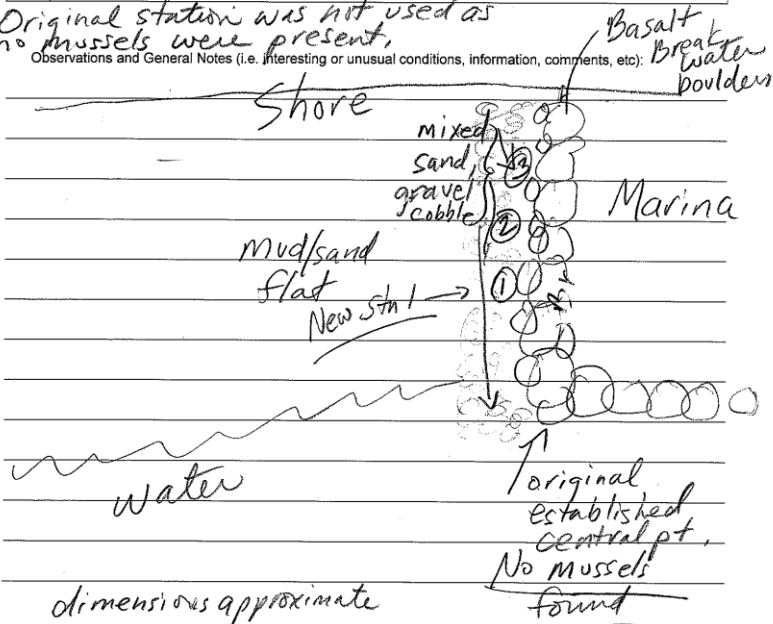 Original station was not used as
no mussels were present.
Observations and General Notes (i.e. interesting or unusual conditions, information, comments, etc):
Basalt
Break
water
boulders
Shore
mixed
sand,
gravel
cobble
3
2
1
Marina
Mud/sand
flat
New Stn 1
water
original
established
central pt.
No mussels
found
dimensions approximate